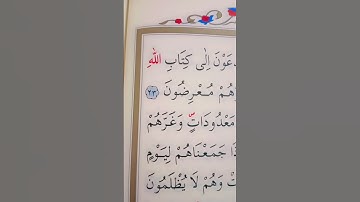 عَوْنَ اِلٰى كِتَابِ اللّٰهِ
هُمْ مُعْرِضُونَ ﴿٢٣﴾
مَعْدُودَاتٍ وَغَرَّهُمْ
ذَا جَمَعْنَاهُمْ لِيَوْمٍ
تْ وَهُمْ لَا يُظْلَمُونَ